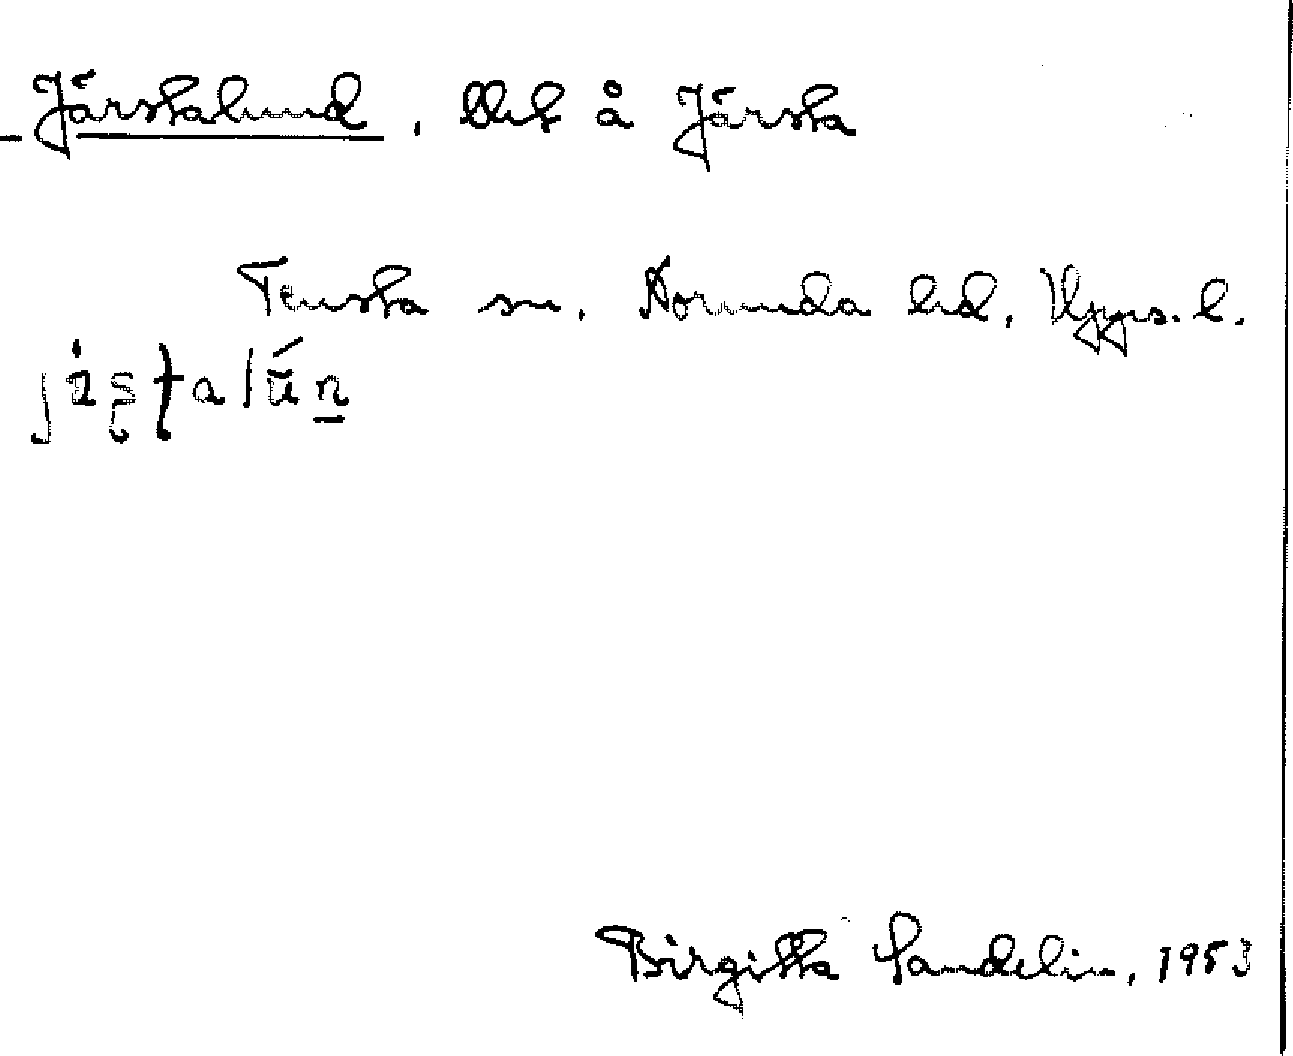 Järstalund, Utf å Järsta
Tensta sn. Norunda hd. Upps. l.
Birgitta Sandelin, 1953